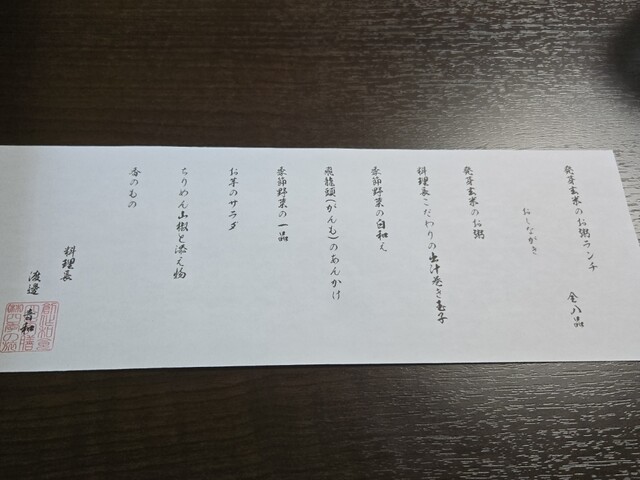 発芽玄米のお粥ランチ　全八品
おしながき
発芽玄米のお粥
料理長こだわりの出汁巻き玉子
季節野菜の白和え
飛龍頭(がんも)のあんかけ
季節野菜の一品
お芋のサラダ
ちりめん山椒と添え物
香のもの
料理長
渡邉　幸和